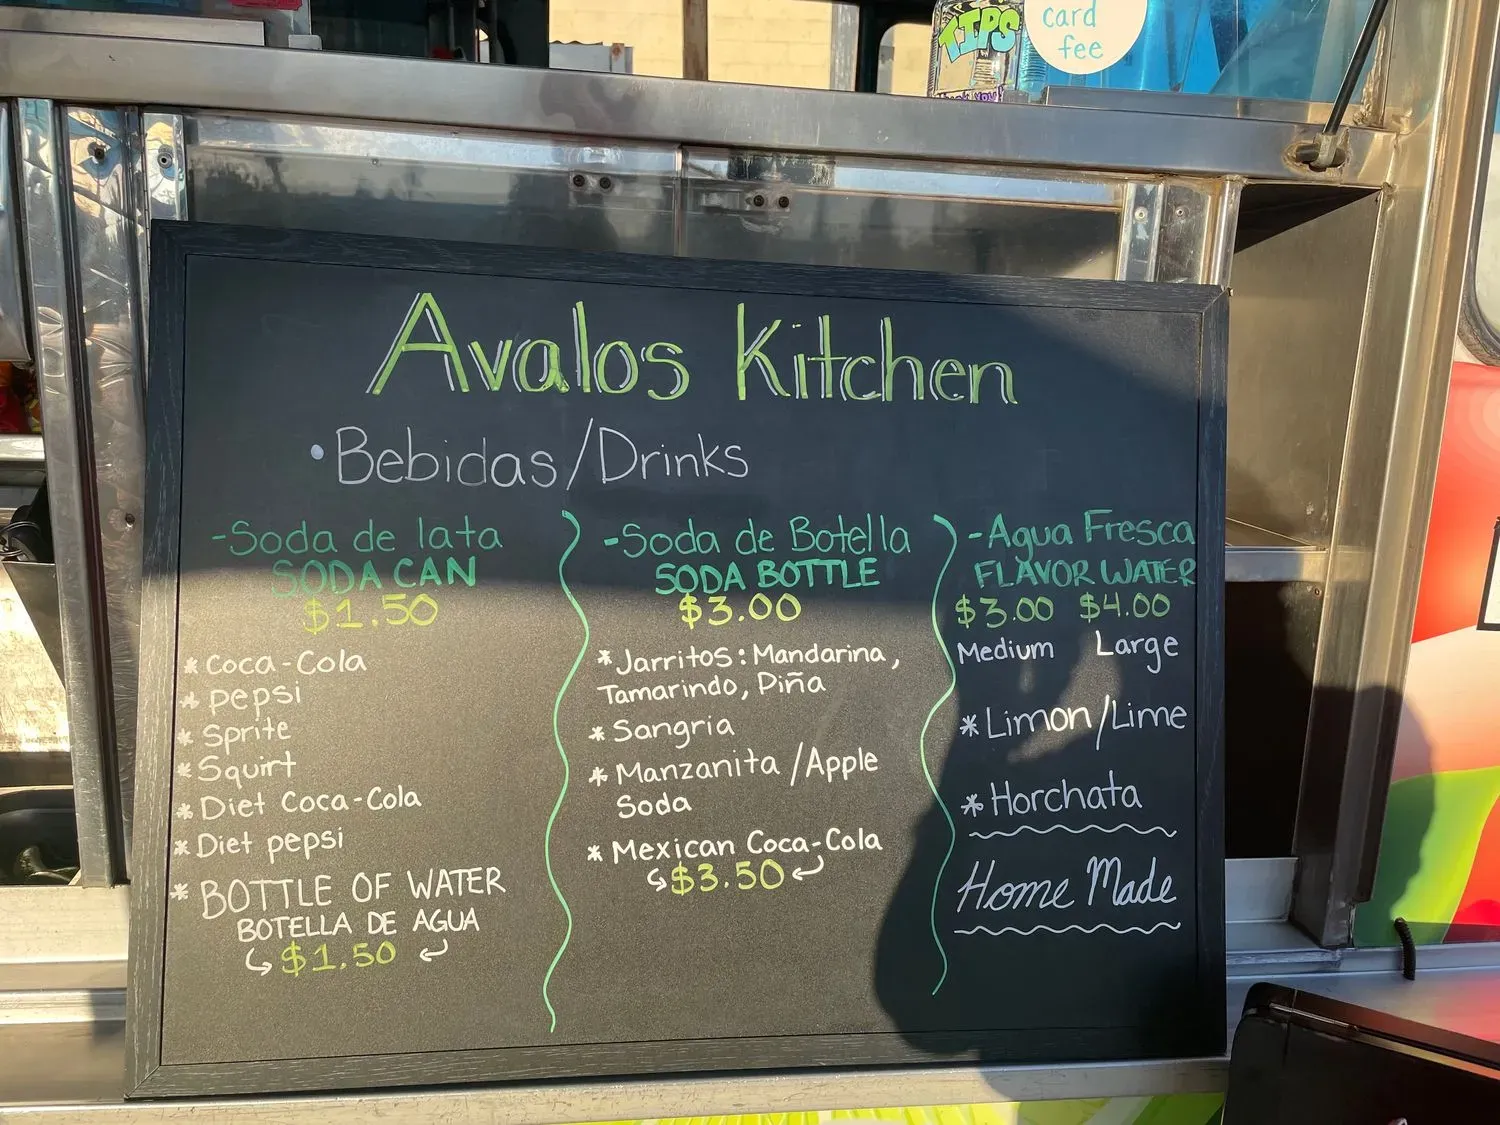 TIPS
card
fee
Avalos Kitchen
•Bebidas/Drinks
-Soda de lata
SODA CAN
$1.50
* Coca-Cola
* pepsi
* Sprite
* Squirt
* Diet Coca-Cola
* Diet pepsi
* BOTTLE OF WATER
BOTELLA DE AGUA
$1.50
-Soda de Botella
SODA BOTTLE
$3.00
*Jarritos: Mandarina,
Tamarindo, Piña
* Sangria
* Manzanita /Apple
Soda
* Mexican Coca-Cola
$3.50
-Agua Fresca
FLAVOR WATER
$3.00 $4.00
Medium Large
* Limon/Lime
* Horchata
Home Made